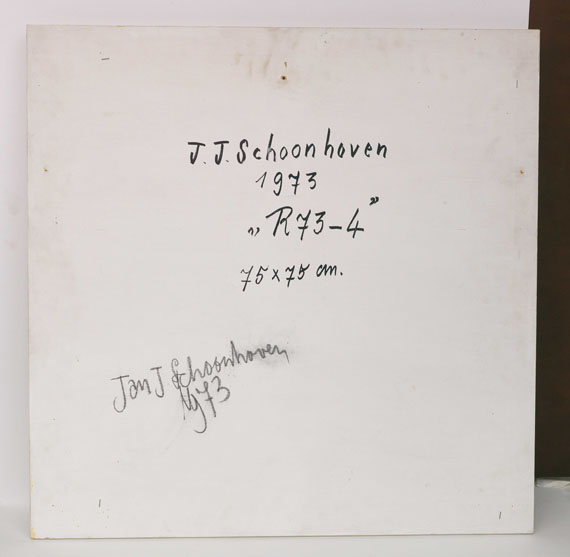 J. J. Schoonhoven
1973
„R73-4”
75x75 cm.
Jan J Schoonhoven
1973